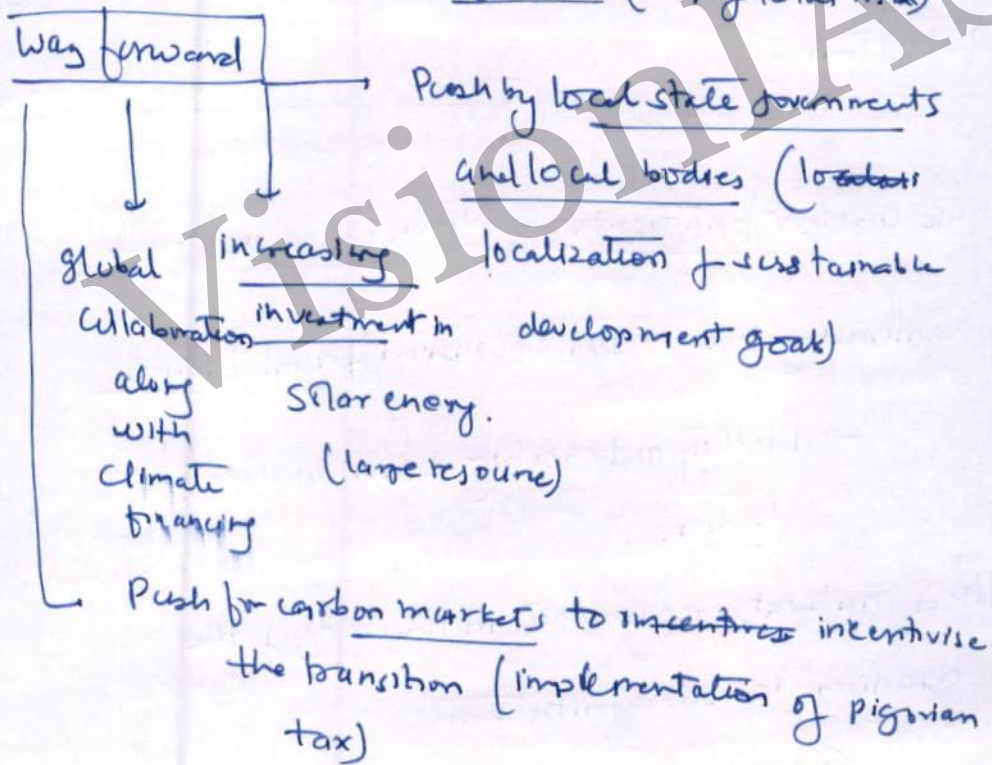 Way forward
Push by local state governments
and local bodies (
localization of sustainable
development goals)
global
collaboration
along
with
climate
financing
increasing
investment in
solar energy.
(large resource)
Push for carbon markets to incentivise
the transition (implementation of pigovian
tax)
VisionIAS